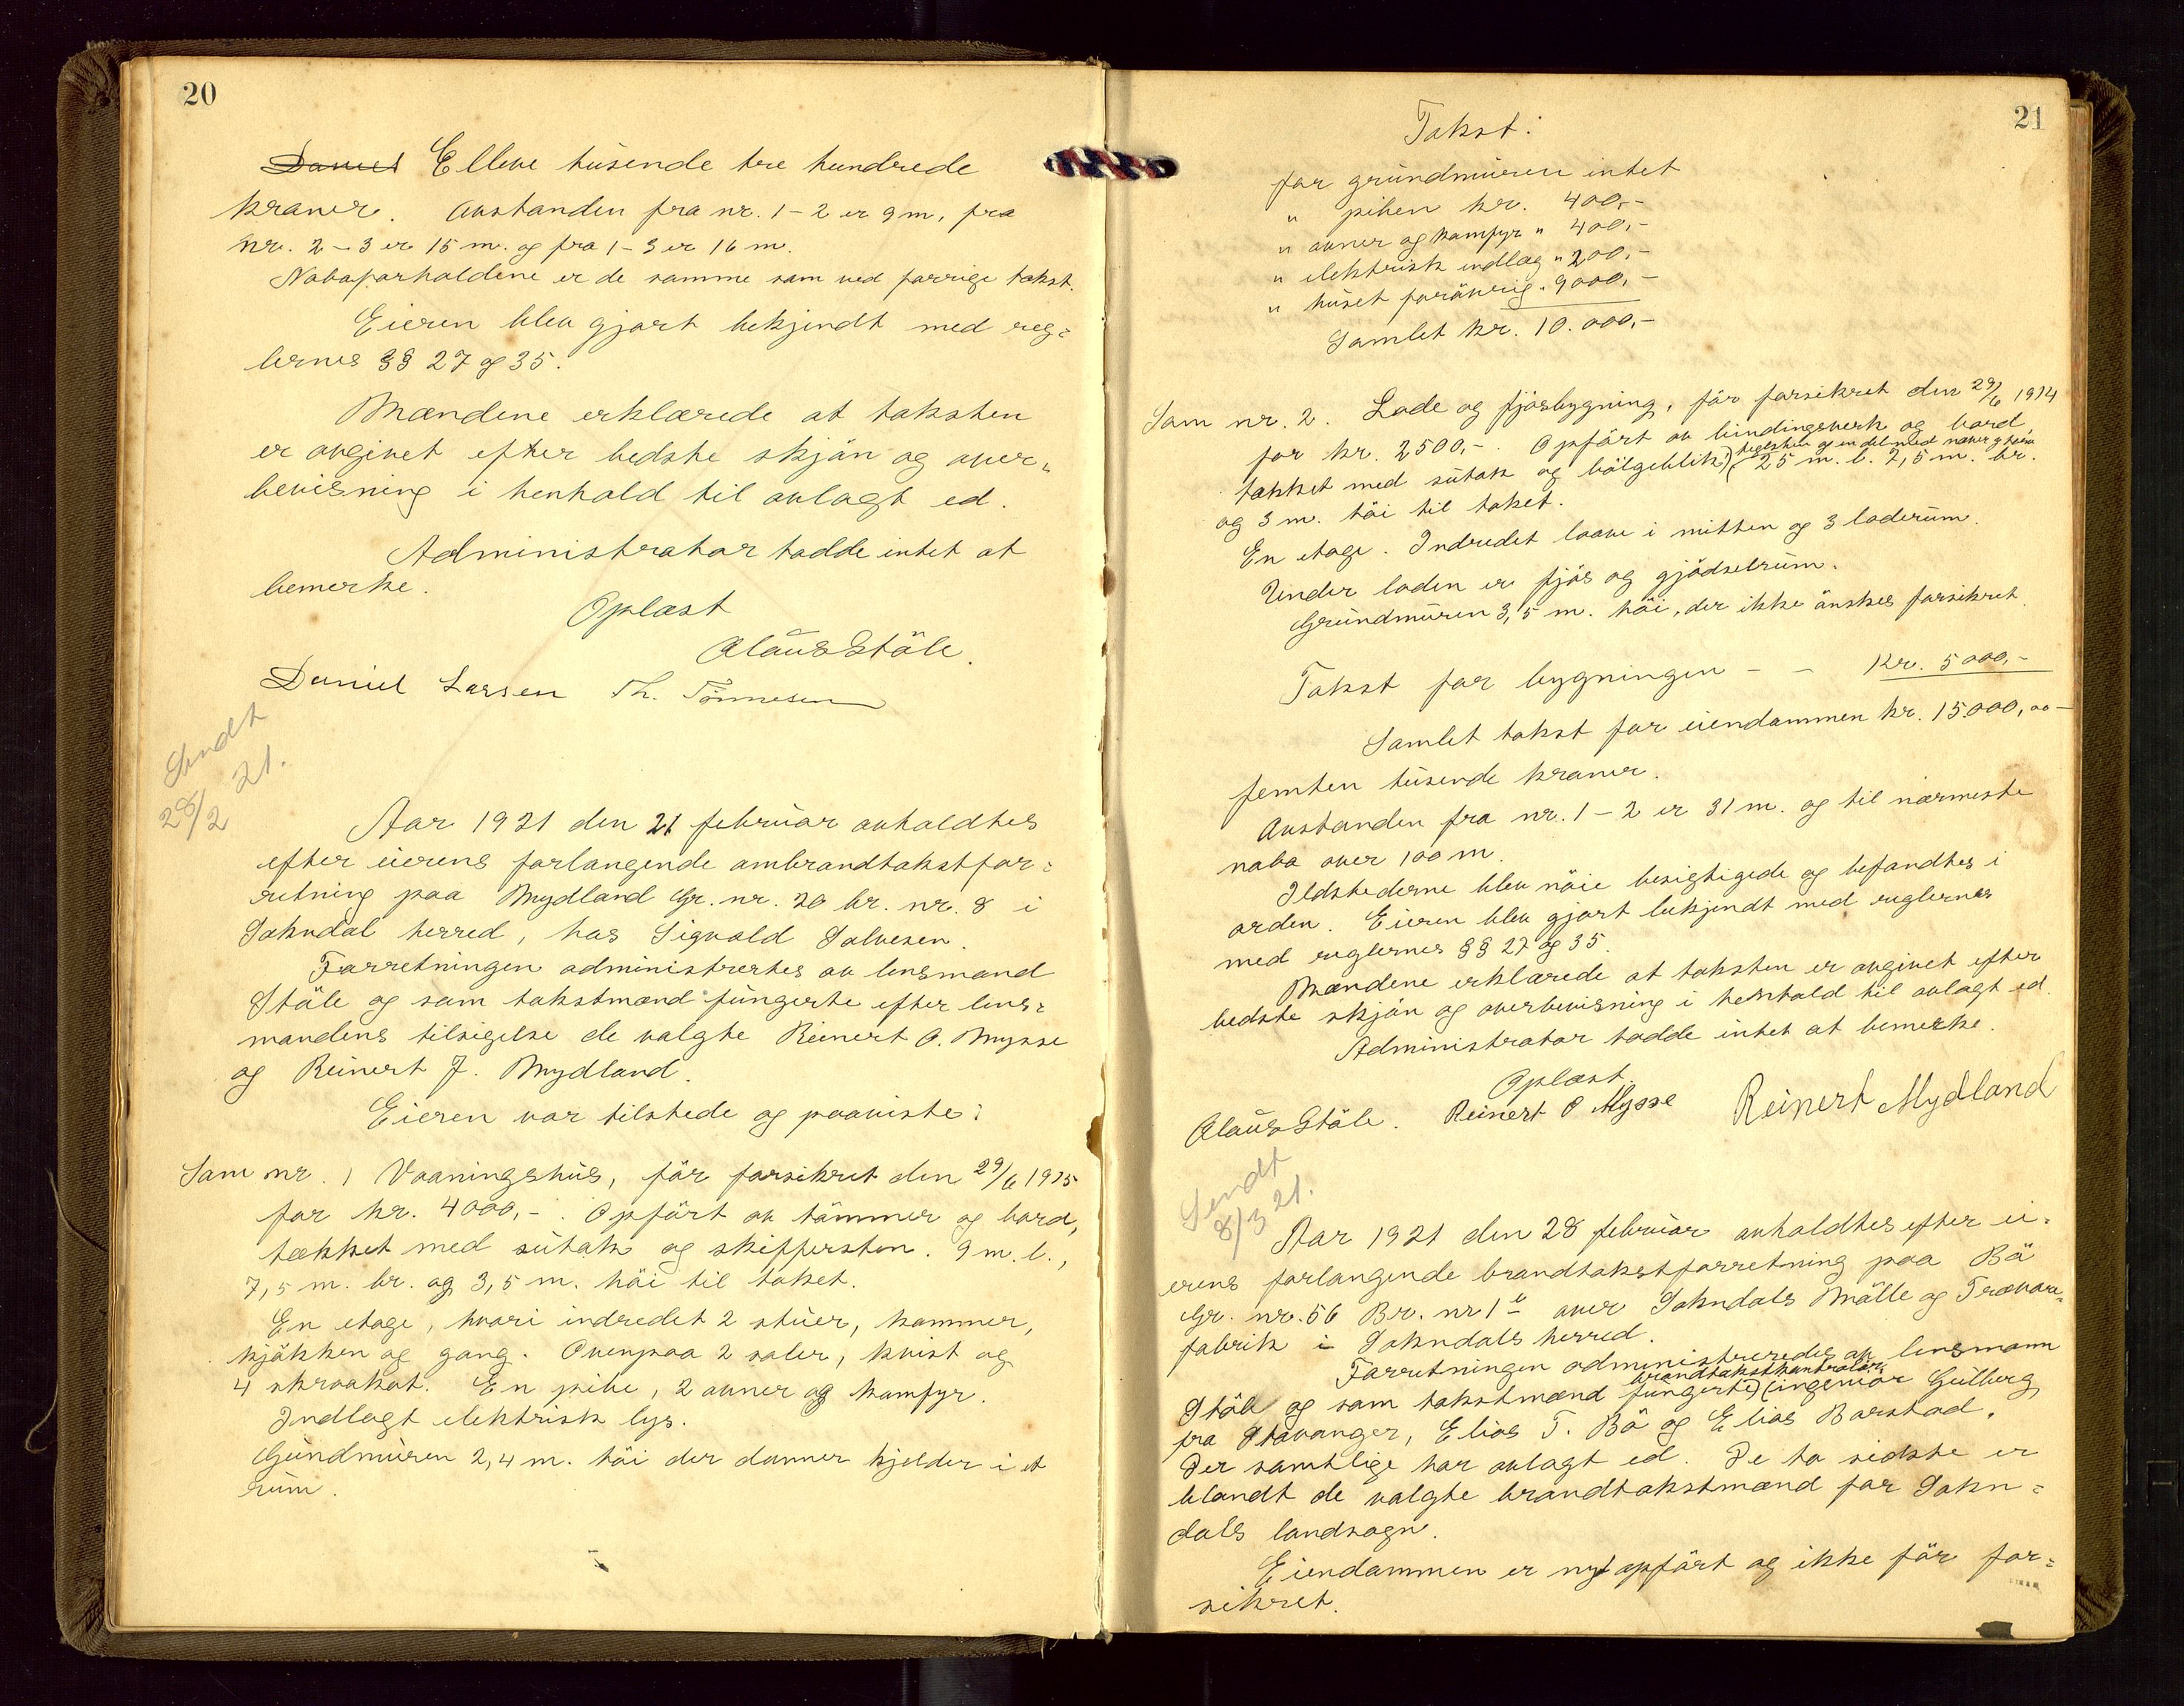 20
Daniel Elleve tusende tre hundrede
kroner. Avstanden fra nr. 1 - 2 er 9 m, fra
nr. 2 - 3 er 15 m. og fra 1 - 3 er 16 m.
Naboforholdene er de samme som ved forrige takst.
Eieren blev gjort bekjendt med reg=
lernes §§ 27 og 35.
Mændene erklærede at taksten
er avgivet efter bedste skjön og over=
bevisning i henhold til avlagt ed.
Administrator hadde intet at
bemerke.
Oplæst
Olaus Stöle.
Daniel Larsen Th. Tönnesen
Sendt
28/2 21.
Aar 1921 den 21 februar avholdtes
efter eierens forlangende ombrandtakstfor=
retning paa Mydland Gr. nr. 20 br. nr. 8 i
Sokndal herred, hos Sigvald Salvesen.
Forretningen administrertes av lensmand
Stöle og som takstmænd fungerte efter lens=
mandens tilsigelse de valgte Reinert O. Mysse
og Reinert J. Mydland.
Eieren var tilstede og paaviste:
Som nr. 1 Vaaningshus, för forsikret den 29/6 1915
for kr. 4000,-. Opfört av tömmer og bord,
tækket med sutak og skiffersten. 9 m. l.,
7,5 m. br. og 3,5 m. höi til taket.
En etage, hvori indredet 2 stuer, kammer,
kjökken og gang. Ovenpaa 2 saler, kvist og
4 skraakot. En pibe, 2 ovner og komfyr.
Indlagt elektrisk lys.
Gundmuren 2,4 m. höi der danner kjelder i et
rum.
21
Takst:
for grundmuren intet
" piben kr. 400,-
" ovner og komfyr " 400,-
" elektrisk indlæg " 200,-
" huset forövrig " 9000,-
Samlet kr. 10.000,-
Som nr. 2. Lade og fjösbygning, för forsikret den 29/6 1914
for kr. 2500,-. Opfört av bindingsverk og bord,
tegelsten og en del med næver og
takket med sutak og bölgeblik) (25 m. l. 7,5 m. br.
og 3 m. höi til taket.
En etage. Indredet laave i mitten og 3 laderum.
Under laden er fjös og gjödselrum.
Grundmuren 3,5 m. höi, der ikke önskes forsikret.
Takst for bygningen - - Kr. 5000,-
Samlet takst for eiendommen kr. 15000,00 -
femten tusende kroner.
Avstanden fra nr. 1 - 2 er 31 m. og til nærmeste
nabo over 100 m.
Ildstederne blev nöie besigtigede og befandtes i
orden. Eieren blev gjort bekjendt med reglernes
med reglernes §§ 27 og 35.
Mændene erklærede at taksten er avgivet efter
bedste skjön og overbevisning i henhold til avlagt ed.
Administrator hadde intet at bemerke.
Oplæst
Olaus Stöle. Reinert O Mysse Reinert Mydland
Sendt
8/3 21.
Aar 1921 den 28 februar avholdtes efter ei=
erens forlangende brandtakstforretning paa Bö
Gr. nr. 56 Br. nr 1 over Sokndals Mölle og Trævare=
fabrik i Sokndals herred.
Forretningen administreredes av lensmann
brandtakstkontrolör
Stöle og som takstmænd fungerte) (ingeniör Gulberg
fra Stavanger, Elias T. Bö og Elias Barstad.
Der samtlige har avlagt ed. De to sidste er
blandt de valgte brandtakstmænd for Sokn=
dals landsogn.
Eiendommen er nyt opfört og ikke för for=
sikret.